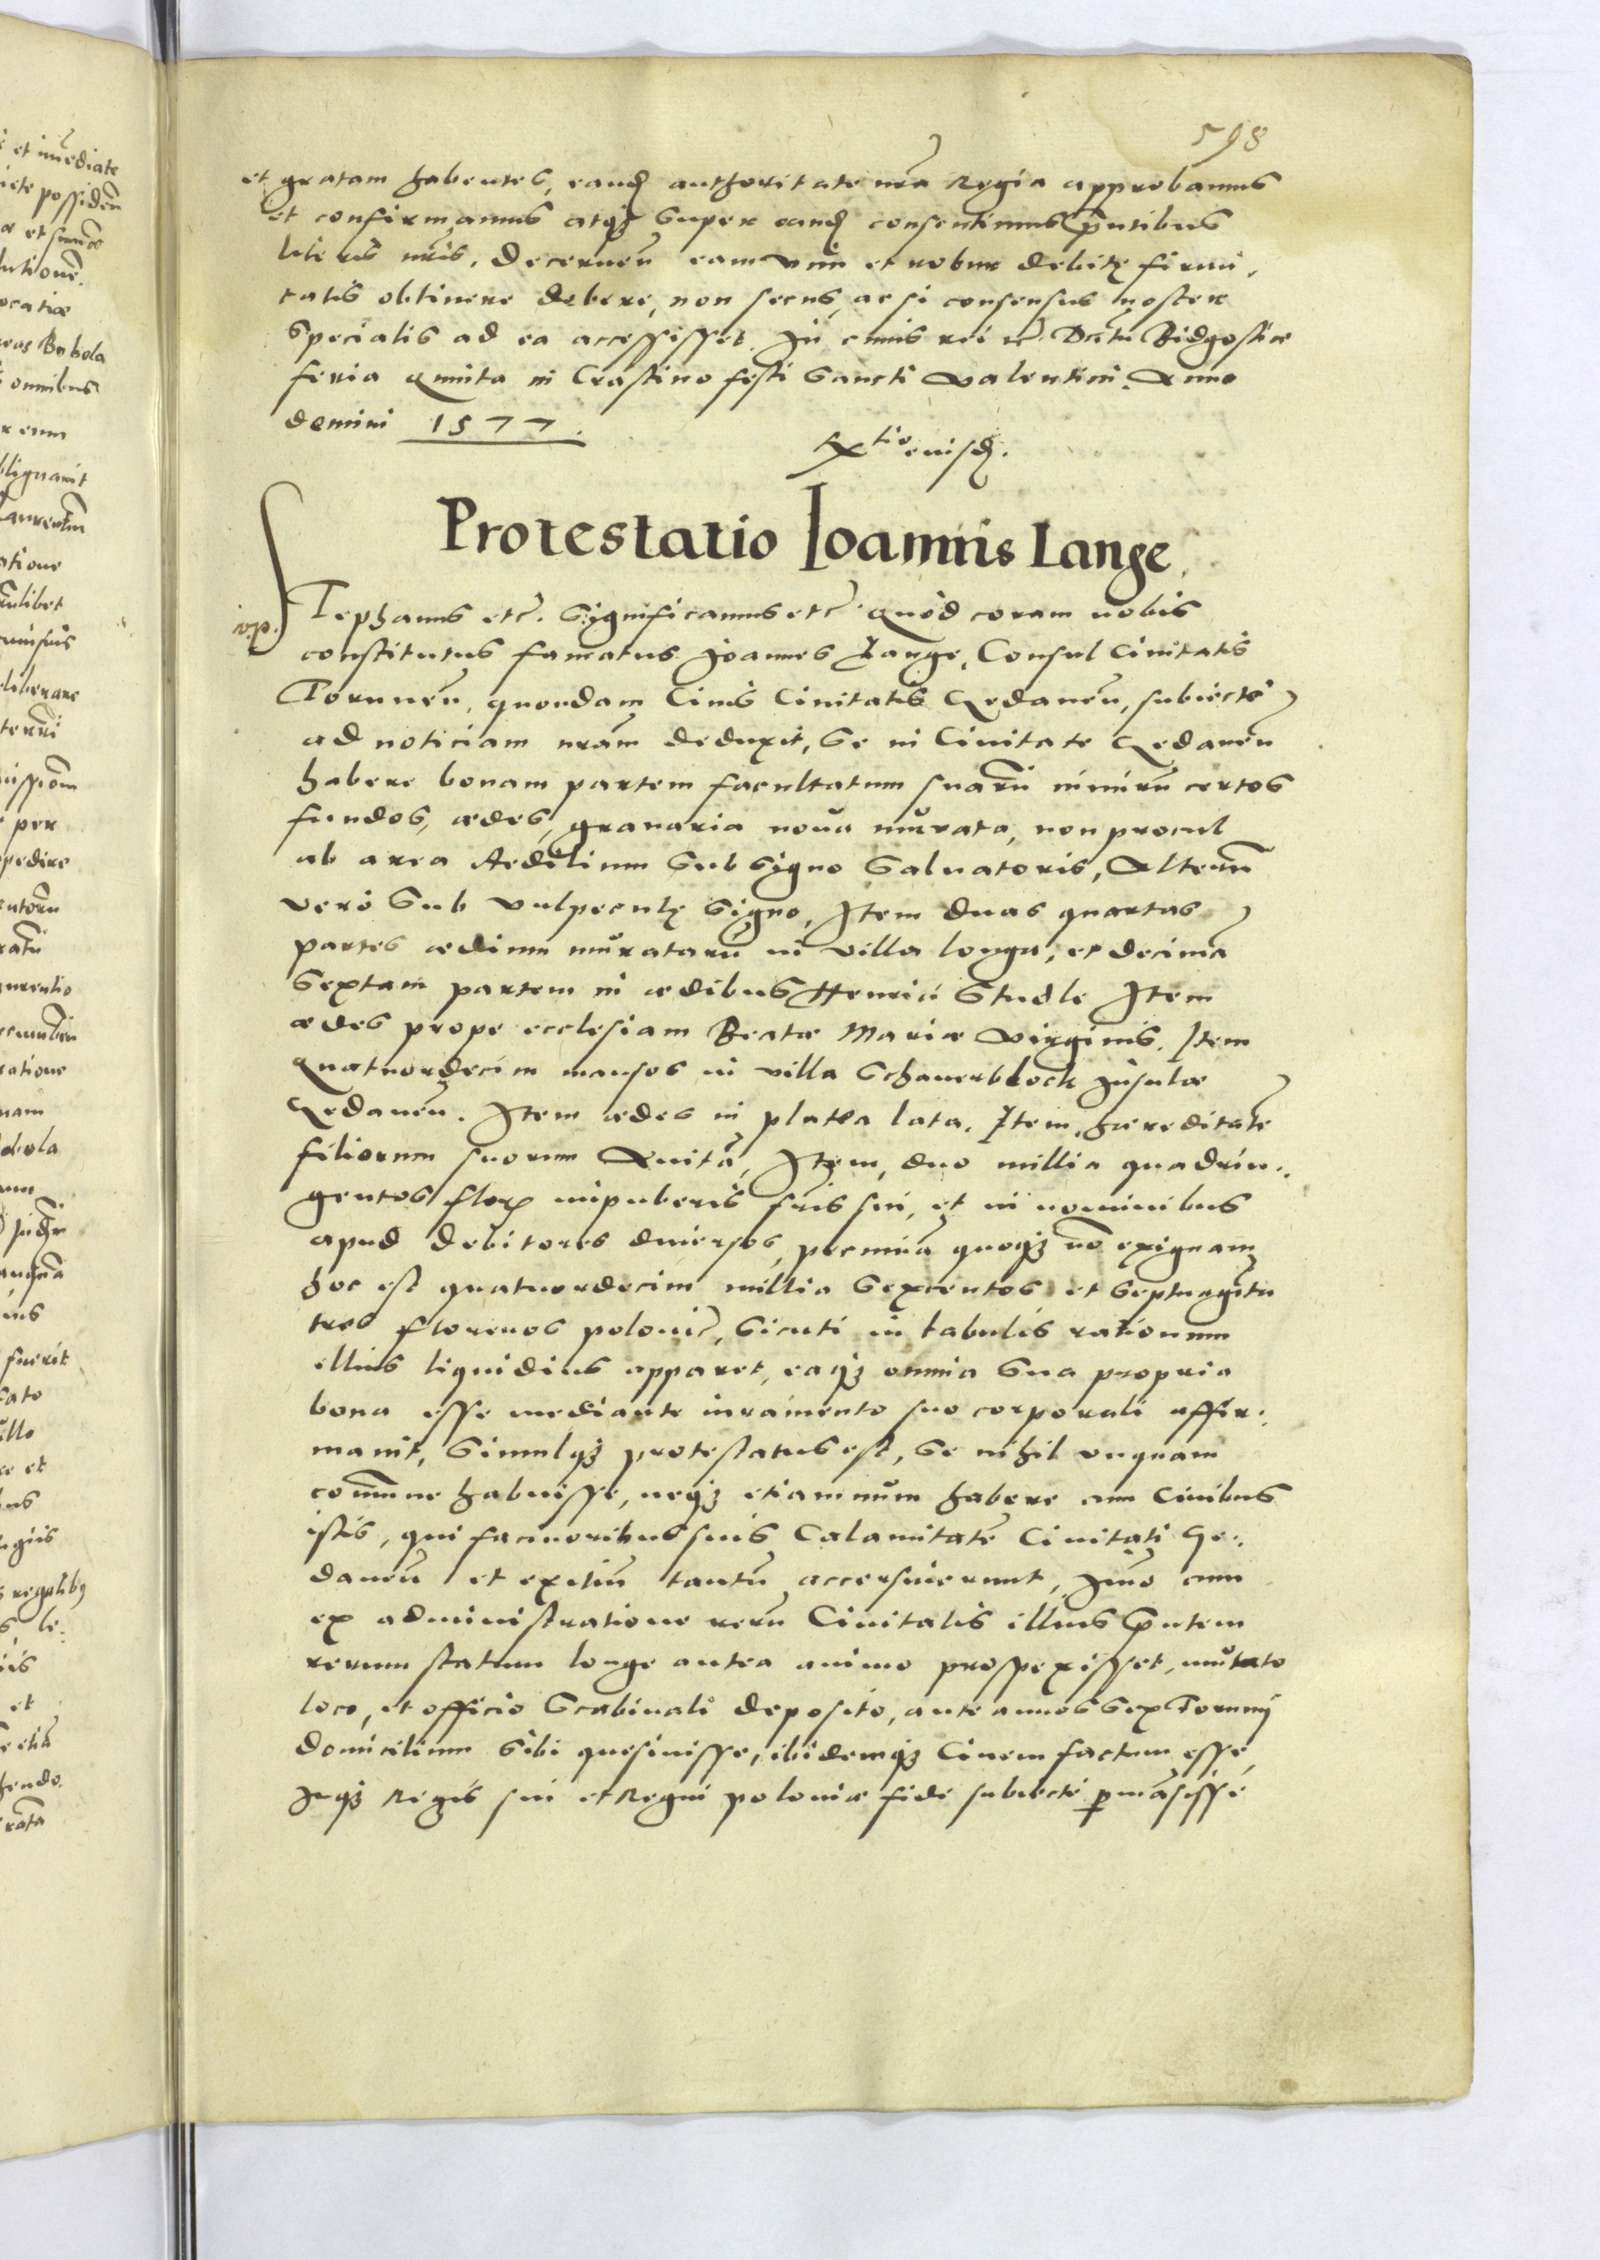 598
et gratam habentes, eand authoritate nrã Regia approbamus
et confirmamus atqz super eand consentimus pñtibus
literis nris. Decernen̄ eam vim et robur debitę firmi,
tatis obtinere debere, non secus, ac si consensus noster
specialis ad ea accessisset. In cuius rei etc̃ Datu Bidgostiæ
feria quinta in Crastino festi Sancti Valentini. Anno
domini 1577.
Rtio eiusd.
Protestatio Ioannis Lange.
v.p.
Stephanus etc̃. Significamus etc̃ Quòd coram nobis
constitutus famatus Joannes Lange, Consul Civitatis
Torunen̄, quondam Civis Civitatis Gedanen̄, subiectè
ad noticiam nrãm deduxit, Se in Civitate Gedanen̄
habere bonam partem facultatum suarū nimirū certos
fundos, ædes, granaria noua mŭrata, non procul
ab area Aedilium sub signo Saluatoris, Alterum̄
verò Sub vulpeculę Signo, Item duas quartas
partes ædium mŭratarū in villa longa, et decimã
Sextam partem in ædibus Henrici Studle Item
ædes prope ecclesiam Beatæ Mariæ Virginis. Item
Quatuordecim mansos in villa Schauerblock Insulæ
Gedanen̄. Item ædes in platea lata. Item, hæreditatẽ
filiorum suorum Auitã, Item, duo millia quadrin:
gentos flor impuberis fris sui, et in nominibus
apud debitores diuersos, pecuniã quoqz nõ exiguam
hoc est quatuordecim millia Sexcentos et Septuaginta
tres florenos polonic̃, Sicuti in tabulis rationum
illius liquidius apparet, eaqz omnia Sua propria
bona esse mediante iuramento suo corporali affir:
mauit, Simulqz protestatus est, Se nihil vnquam
com̄une habuisse, neqz etiamnŭm habere cum Ciuibus
istis, qui facinoribus suis Calamitatẽ Ciuitati Ge:
danen̄ et exitiū tantū accersiuerunt, Imò cum
ex administratione rerū Ciuitatis illius pñtem
rerum statum longe antea animo prospexisset, mŭtato
loco, et officio Scabinali deposito, ante annos sex Torunij
domicilium Sibi quesiuisse, ibidemqz Ciuem factum esse,
Inqz Regis sui et Regni poloniæ fide subiectè pmãsisse